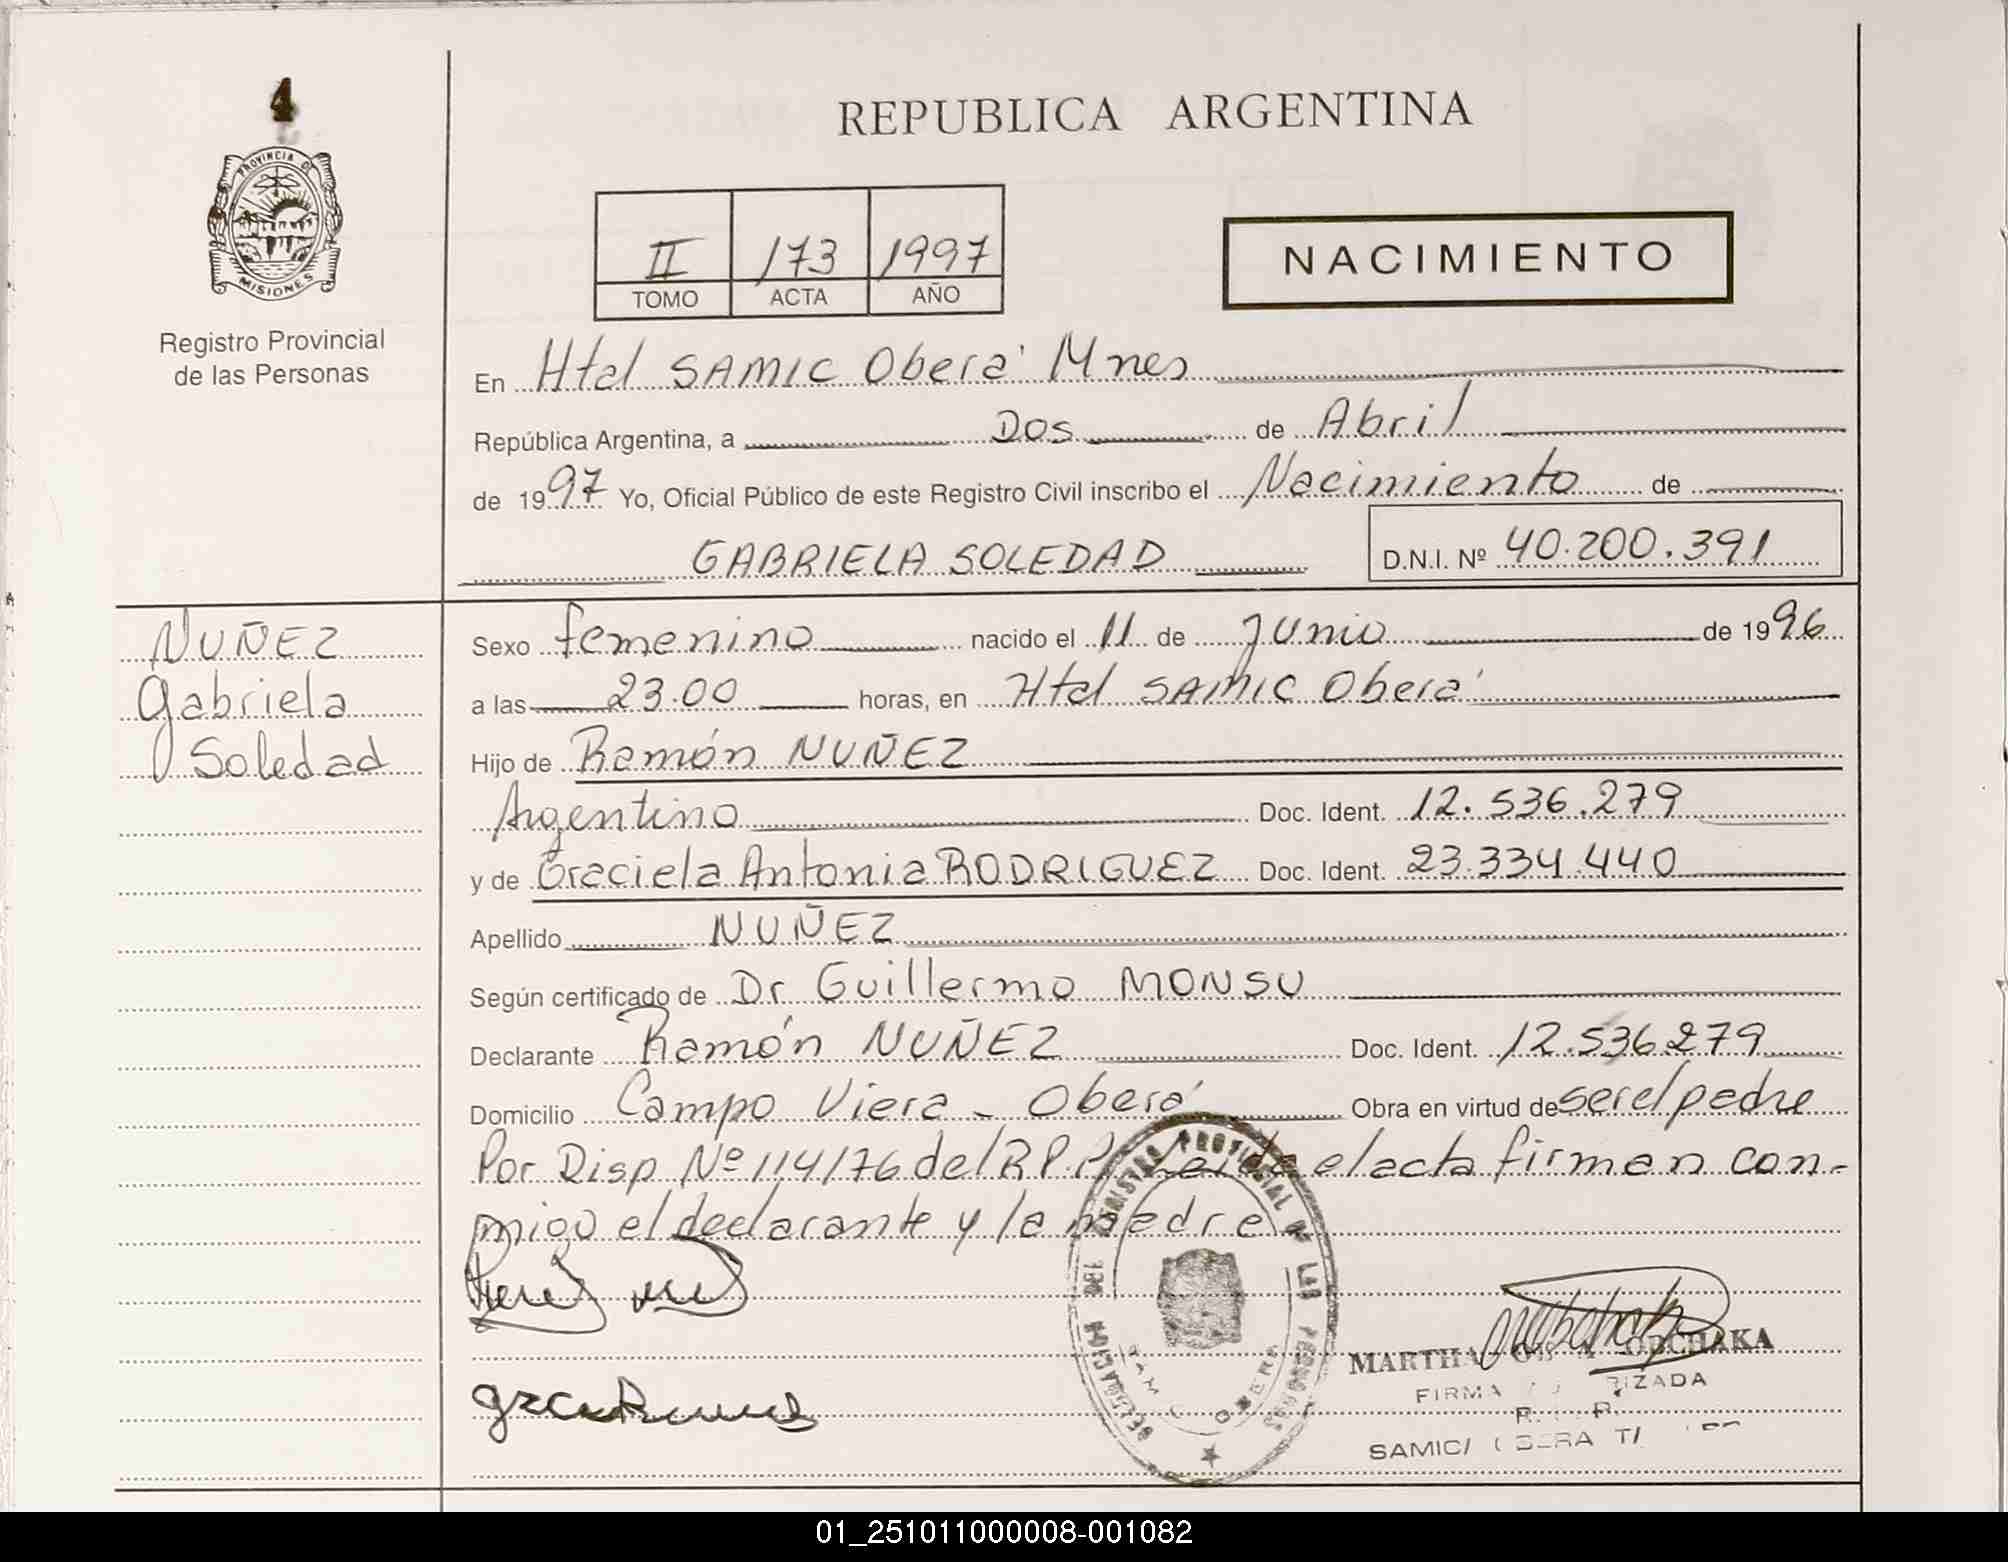 4
PROVINCIA DE
MISIONES
Registro Provincial
de las Personas
REPUBLICA ARGENTINA
II 173 1997
TOMO ACTA AÑO
NACIMIENTO
En Htal SAMIC Oberá Mnes
República Argentina, a Dos de Abril
de 1997 Yo, Oficial Público de este Registro Civil inscribo el Nacimiento de
GABRIELA SOLEDAD D.N.I. Nº 40.200.391
NUÑEZ
Gabriela
Soledad
Sexo femenino nacido el 11 de Junio de 1996
a las 23.00 horas, en Htal SAMIC Oberá
Hijo de Ramón NUÑEZ
Argentino Doc. Ident. 12.536.279
y de Graciela Antonia RODRIGUEZ Doc. Ident. 23.334.440
Apellido NUÑEZ
Según certificado de Dr Guillermo MONSU
Declarante Ramón NUÑEZ Doc. Ident. 12.536.279
Domicilio Campo Viera - Oberá Obra en virtud de ser el padre
Por Disp Nº 114/76 del R.P.P. Leida el acta firman con-
migo el declarante y la madre
MARTHA
FIRMA
SAMIC
01_251011000008-001082